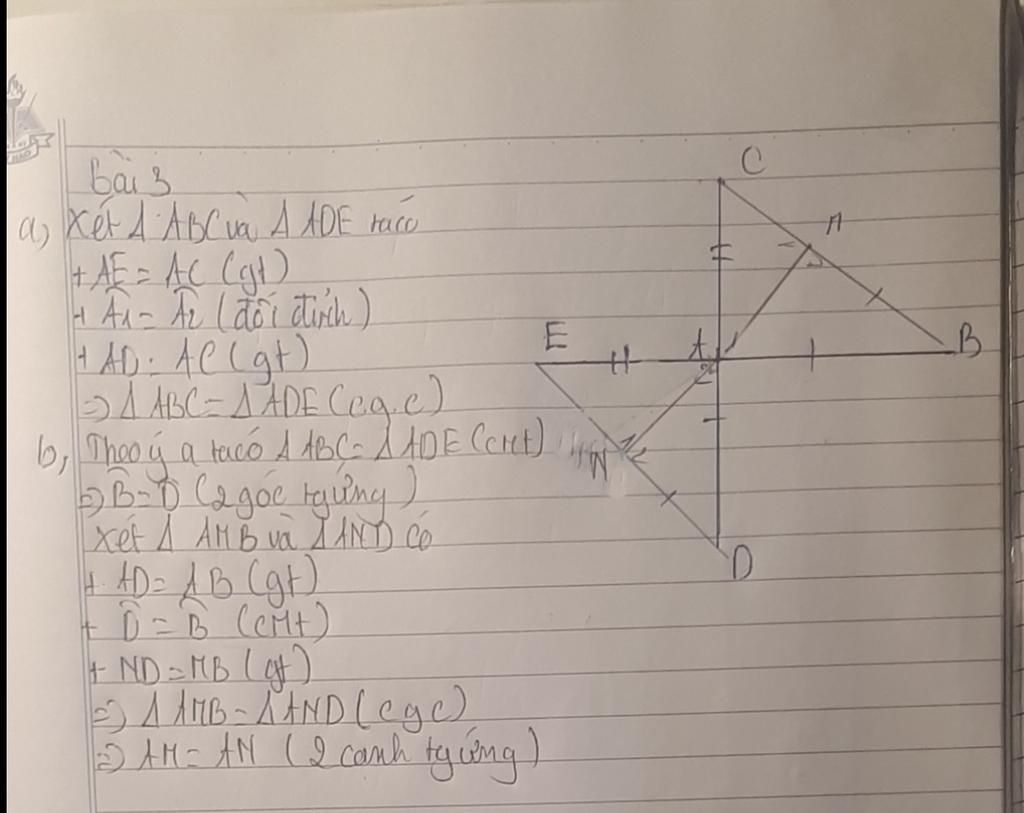 bài 3
a) Xét Δ ABC và Δ ADE ta có
+ AE = AC (gt)
+ Â1 = Â2 (đối đỉnh)
+ AD = AC (gt)
=> Δ ABC = Δ ADE (c.g.c)
b, Theo ý a ta có Δ ABC = Δ ADE (cmt)
=> B̂ = D̂ (2 góc tg ứng)
Xét Δ AMB và Δ AND có
+ AD = AB (gt)
+ D̂ = B̂ (cmt)
+ ND = MB (gt)
=> Δ AMB = Δ AND (c g c)
=> AM = AN (2 canh tg ứng)
C
A
E
A
B
2
N
D